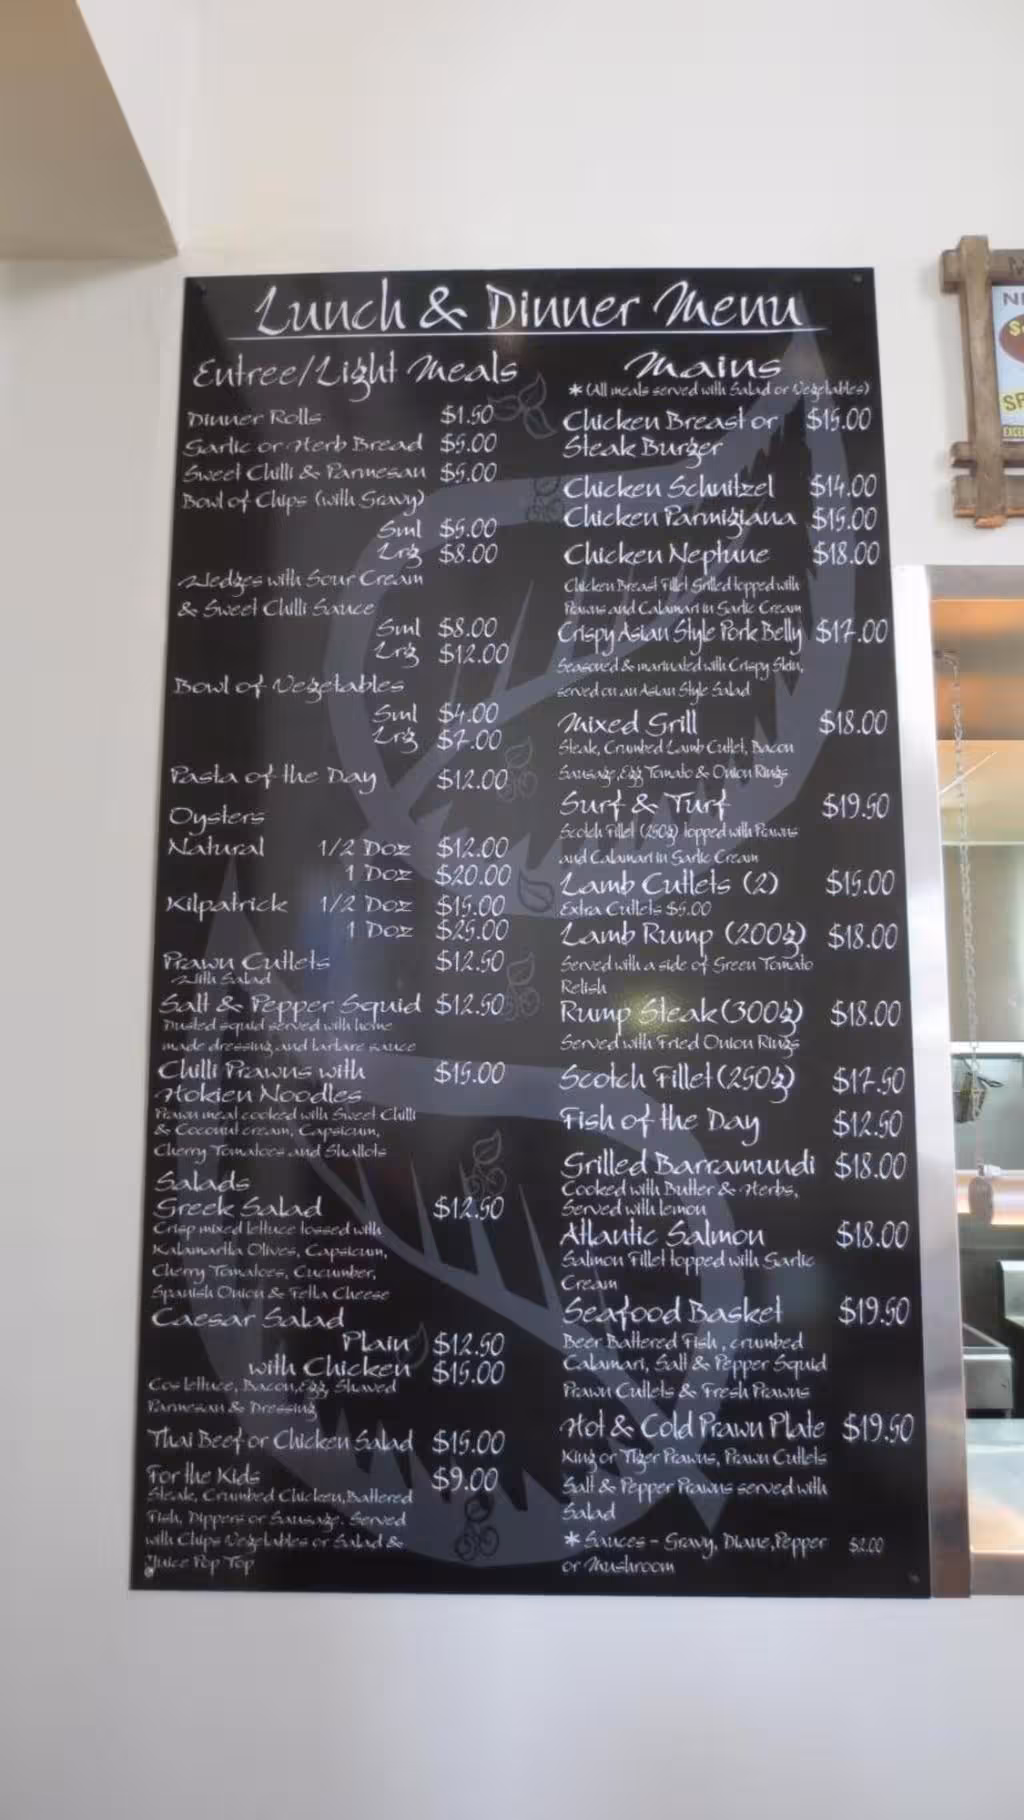 Lunch & Dinner Menu
Entree/Light Meals
Dinner Rolls $1.50
Garlic or Herb Bread $5.00
Sweet Chilli & Parmesan $5.00
Bowl of Chips (with Gravy)
Sml $5.00
Lrg $8.00
Wedges with Sour Cream
& Sweet Chilli Sauce
Sml $8.00
Lrg $12.00
Bowl of Vegetables
Sml $4.00
Lrg $7.00
Pasta of the Day $12.00
Oysters
Natural 1/2 Doz $12.00
1 Doz $20.00
Kilpatrick 1/2 Doz $15.00
1 Doz $25.00
Prawn Cutlets $12.50
With Salad
Salt & Pepper Squid $12.50
Dusted squid served with home
made dressing and tartare sauce
Chilli Prawns with $15.00
Hokien Noodles
Prawn meat cooked with Sweet Chilli
& Coconut cream, Capsicum,
Cherry Tomatoes and Shallots
Salads
Greek Salad $12.50
Crisp mixed lettuce tossed with
Kalamartta Olives, Capsicum,
Cherry Tomatoes, Cucumber,
Spanish Onion & Fetta Cheese
Caesar Salad
Plain $12.50
with Chicken $15.00
Cos lettuce, Bacon, Egg, Shaved
Parmesan & Dressing
Thai Beef or Chicken Salad $15.00
For the Kids $9.00
Steak, Crumbed Chicken, Battered
Fish, Dippers or Sausage. Served
with Chips Vegetables or Salad &
Juice Pop Top
Mains
*(All meals served with Salad or Vegetables)
Chicken Breast or $15.00
Steak Burger
Chicken Schnitzel $14.00
Chicken Parmigiana $15.00
Chicken Neptune $18.00
Chicken Breast Fillet Grilled topped with
Prawns and Calamari in Garlic Cream
Crispy Asian Style Pork Belly $17.00
Seasoned & marinated with Crispy Skin,
served on an Asian Style Salad
Mixed Grill $18.00
Steak, Crumbed Lamb Cutlet, Bacon
Sausage, Egg Tomato & Onion Rings
Surf & Turf $19.50
Scotch Fillet (250g) topped with Prawns
and Calamari in Garlic Cream
Lamb Cutlets (2) $15.00
Extra Cutlets $5.00
Lamb Rump (200g) $18.00
Served with a side of Green Tomato
Relish
Rump Steak (300g) $18.00
Served with Fried Onion Rings
Scotch Fillet (250g) $17.50
Fish of the Day $12.50
Grilled Barramundi $18.00
Cooked with Butter & Herbs,
Served with lemon
Atlantic Salmon $18.00
Salmon Fillet topped with Garlic
Cream
Seafood Basket $19.50
Beer Battered Fish, crumbed
Calamari, Salt & Pepper Squid
Prawn Cutlets & Fresh Prawns
Hot & Cold Prawn Plate $19.50
King or Tiger Prawns, Prawn Cutlets
Salt & Pepper Prawns served with
Salad
* Sauces - Gravy, Diane, Pepper $2.00
or Mushroom